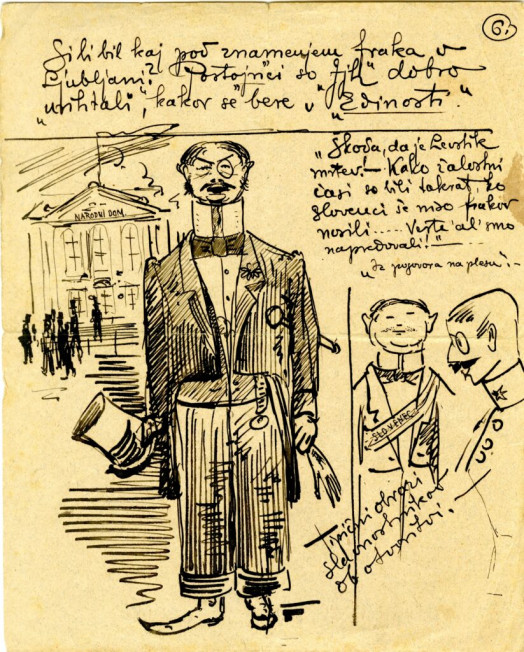 6.
Si li bil kaj pod znamenjem fraka v
Ljubljani? Postojnci so "jih" dobro
"vrihtali", kakor se bere v "Edinosti."
NARODNI DOM
"Škoda, da je Levstik
mrtev! — Kako žalostni
časi so bili takrat, ko
slovenci še niso frakov
nosili ..... Veste al' smo
napredovali!" —
"Iz pogovora na plesu". —
SLOVENEC
Tipični obrazi
slavnostnikov
ob otvoritvi. —